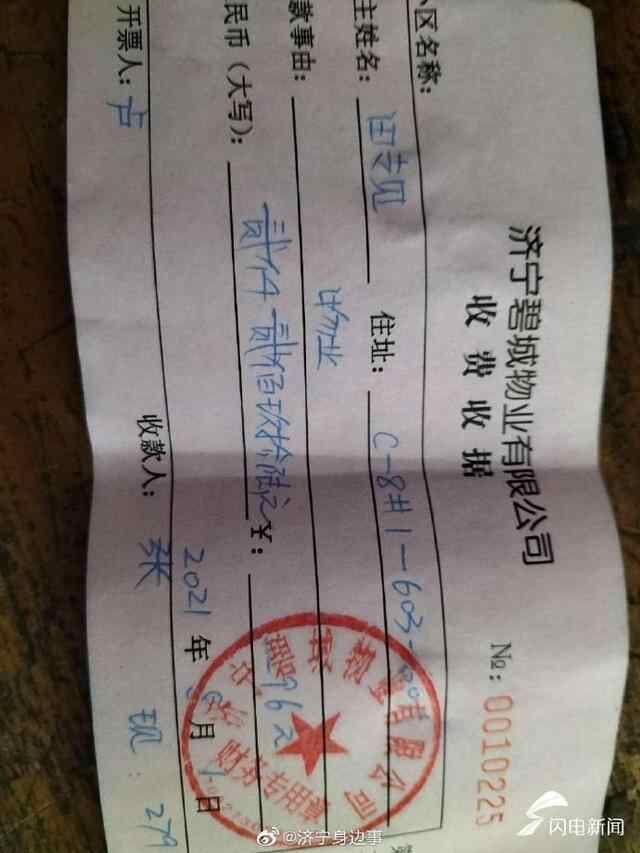 济宁碧城物业有限公司
收费收据
№: 0010225
小区名称:
主姓名: 田专见 住址: C-8#1-603
款事由: 物业
民币(大写): 贰仟贰佰玖拾陆元 ¥: 2296元
2021年 月1日
开票人: 卢 收款人: 张 现 279
济宁碧城物业有限公司
财务专用章
闪电新闻
@济宁身边事